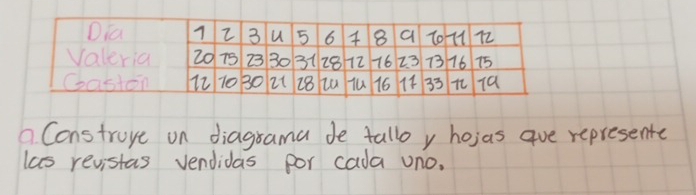 Día 1 2 3 4 5 6 7 8 9 10 11 12
Valeria 20 15 23 30 31 28 12 16 23 13 16 15
Gastón 12 10 30 21 28 24 14 16 17 33 12 19
a. Construye un diagrama de tallo y hojas que represente
las revistas vendidas por cada uno.